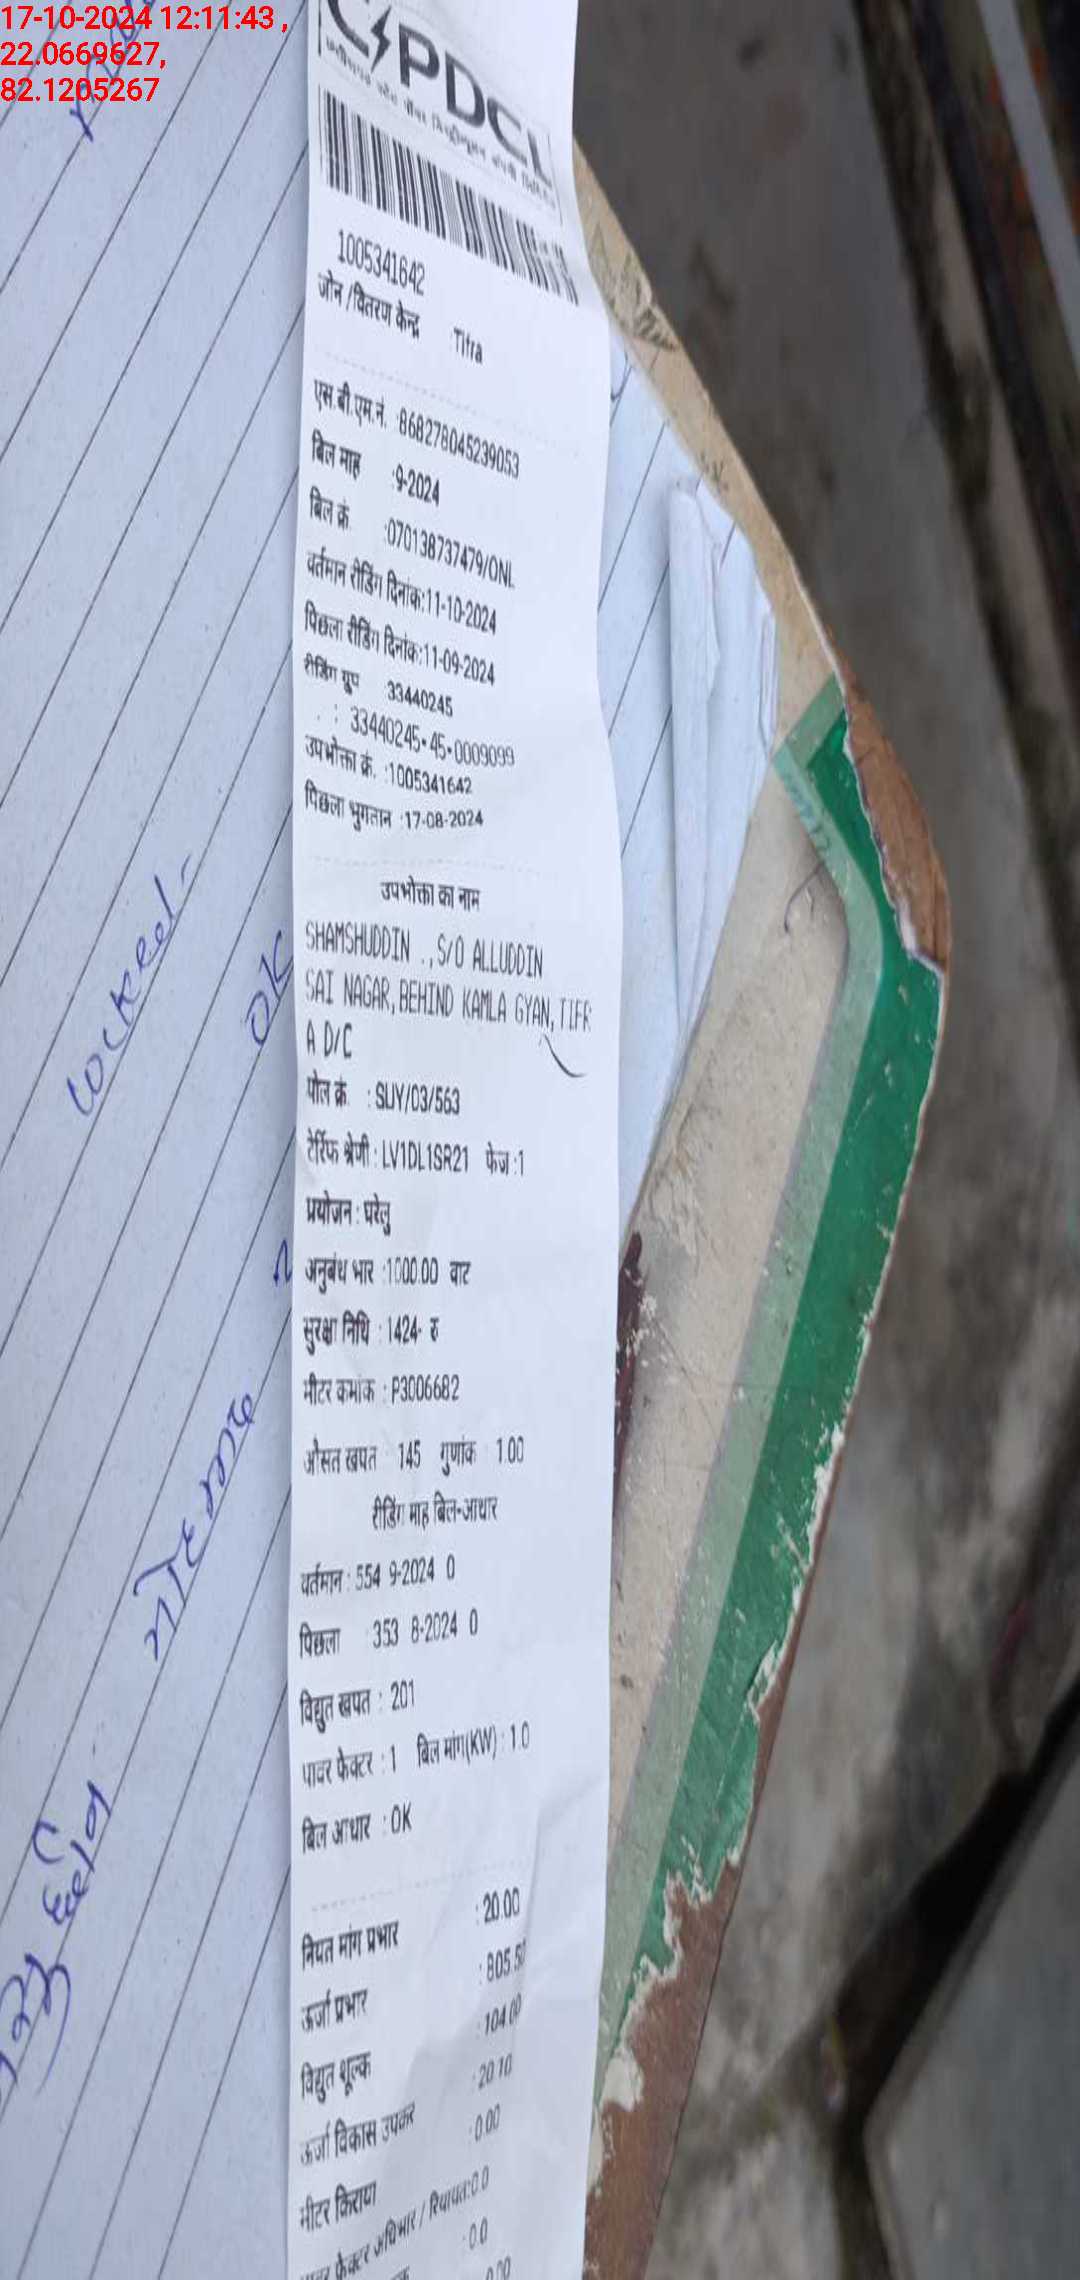 17-10-2024 12:11:43 ,
22.0669627,
82.1205267
CSPDCL
1005341642
जोन /वितरण केन्द्र :Tifra
एस.बी.एम.नं. :868278045239053
बिल माह :9-2024
बिल क्रं. :070138737479/ONL
वर्तमान रीडिंग दिनांक:11-10-2024
पिछला रीडिंग दिनांक:11-09-2024
रीडिंग ग्रुप 33440245
: 33440245-45-0009099
उपभोक्ता क्रं. :1005341642
पिछला भुगतान :17-08-2024
उपभोक्ता का नाम
SHAMSHUDDIN .,S/O ALLUDDIN
SAI NAGAR,BEHIND KAMLA GYAN,TIFR
A D/C
पोल क्रं. : SUY/03/563
टेर्रिफ श्रेणी : LV1DL1SR21 फेज :1
प्रयोजन : घरेलु
अनुबंध भार :1000.00 वाट
सुरक्षा निधि : 1424- रु
मीटर कमांक : P3006682
औसत खपत 145 गुणांक 1.00
रीडिंग माह बिल-आधार
वर्तमान : 554 9-2024 0
पिछला : 353 8-2024 0
विद्युत खपत : 201
पावर फेक्टर : 1 बिल मांग(KW) : 1.0
बिल आधार : OK
नियत मांग प्रभार : 20.00
ऊर्जा प्रभार : 805.50
विद्युत शूल्क : 104.00
ऊर्जा विकास उपकर : 20.10
मीटर किराया : 0.00
फेक्टर अधिभार / रियायत:0.0
:0.0
0.00
Locked
OK